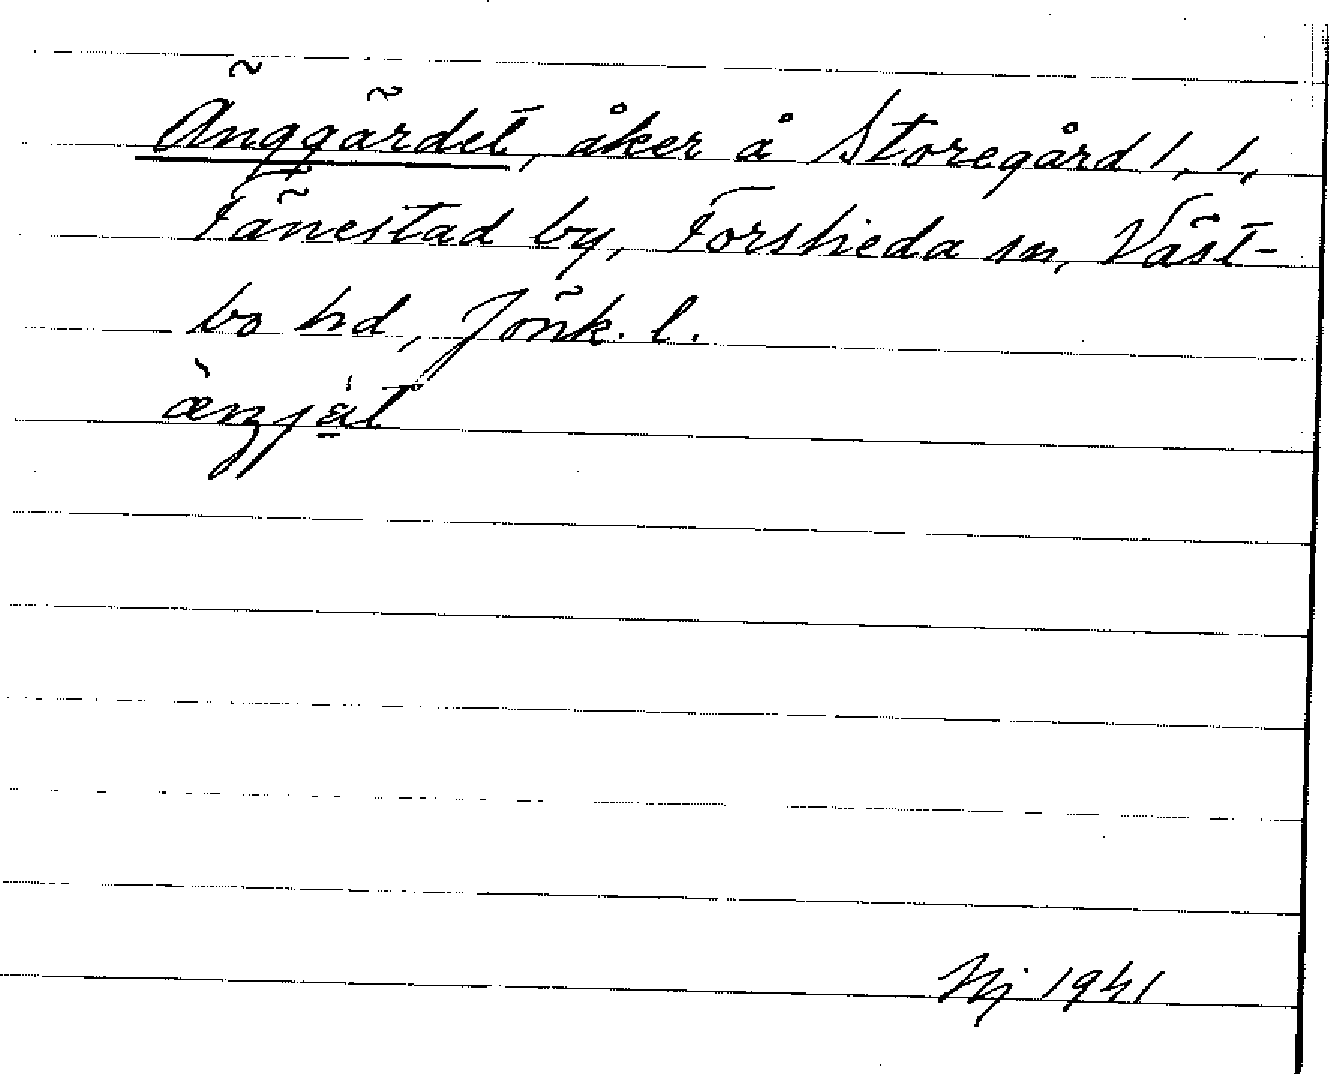 Änggärdet, åker å Storegård 1, 1,
Fänestad by, Forsheda sn, Väst-
bo hd, Jönk. l.
Nj 1941